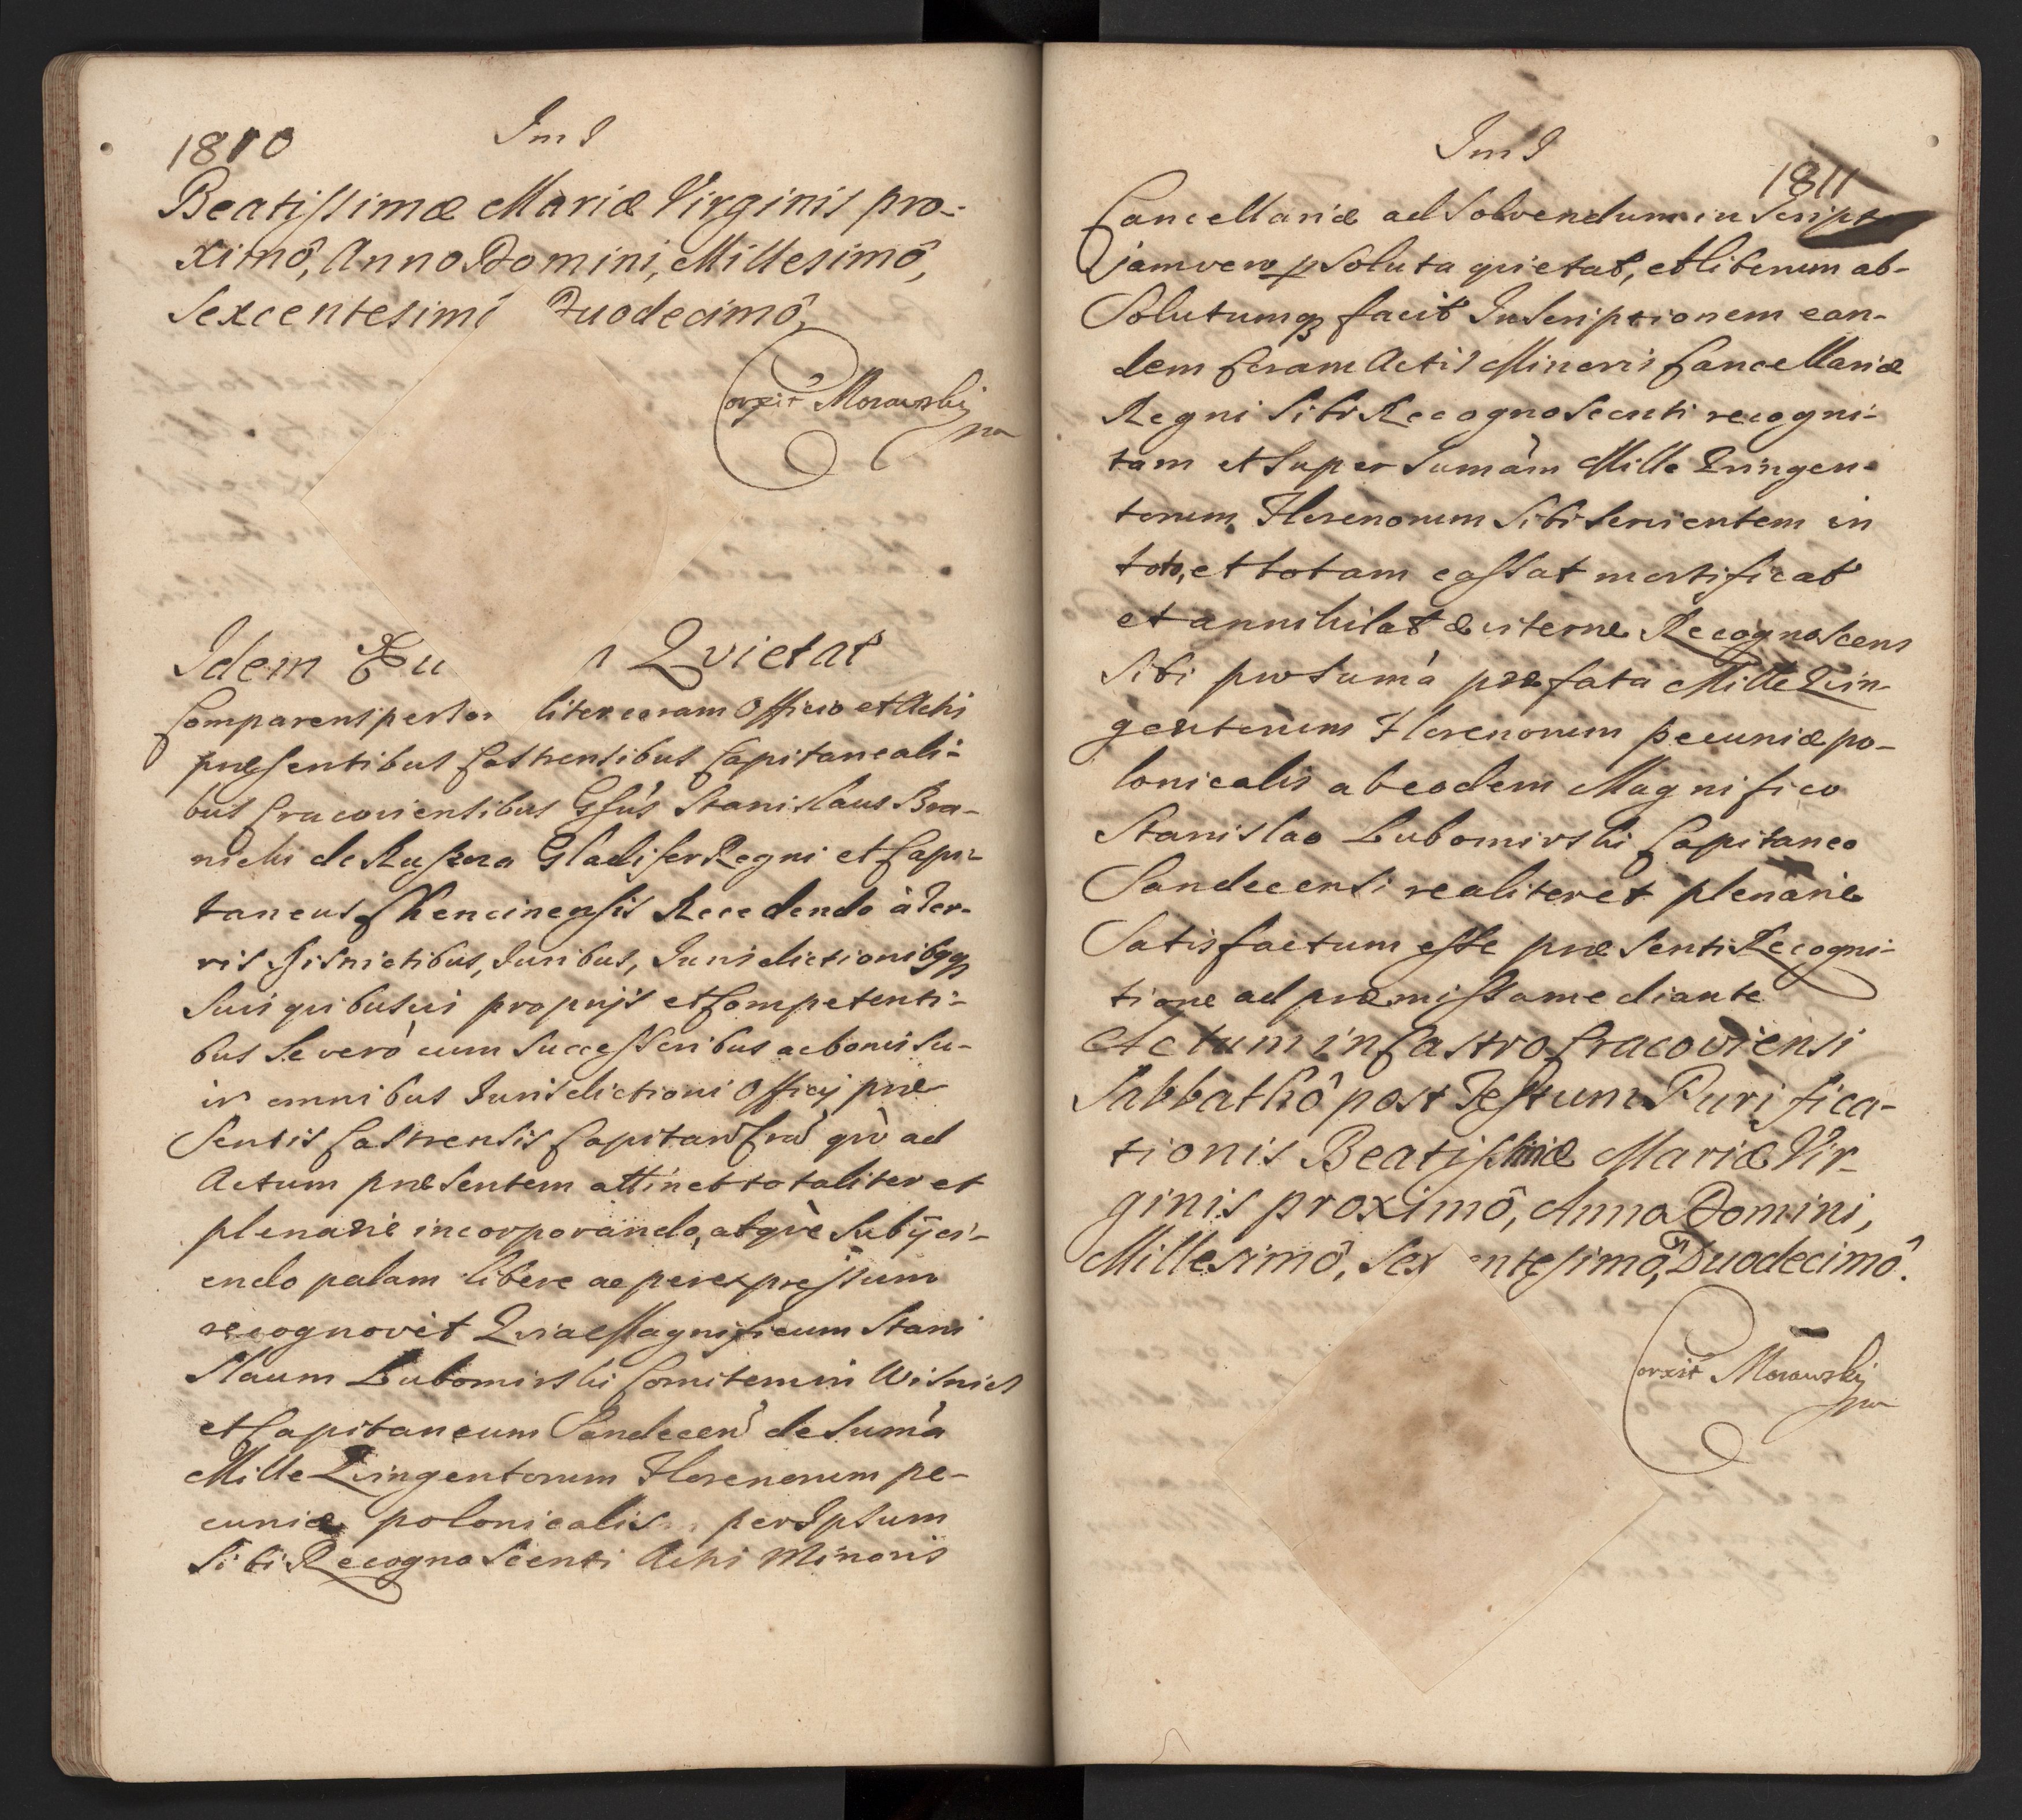 1810
Im I
Beatissimæ Mariæ Virginis pro-
ximô, Anno Domini, Millesimô,
Sexcentesim Duodecimô
Corxit Morawskj
mp
Idem Eu Qvietat
Comparens perso liter coram Officio et Actis
præsentibus Castrensibus Capitaneali-
bus Cracoviensibus Gsus Stanislaus Bra-
nicki de Ruszcza Gladifer Regni et Capi-
taneus Chencinensis Recedendo à Ter-
ris Districtibus, Juribus, Jurisdictionibqq
Suis quibusvis proprijs et Competenti-
bus Se verò cum Successoribus ac bonis Su-
is omnibus Jurisdictioni Officij præ
Sentis Castrensis Capitan Cra quò ad
Actum præsentem attinet totaliter et
plenarie incorporando, atque Subijci-
endo palam libere ac per expressum
recognovit Quia Magnificum Stani
Slaum Lubomirski Comitem in Wisnicz
et Capitaneum Sandecen de Suma
Mille Quingentorum Florenorum pe-
cuniæ polonicalis per Ipsum
Sibi Recognoscenti Actis Minoris
Im I
1811
Cancellariæ ad Solvendum in Script
jam vero p Soluta quietat, et liberum ab-
Solutumq facit Inscriptionem ean-
dem Coram Actis Minoris Cancellariæ
Regni Sibi Recognoscenti recogni-
tam et Super Sumam Mille Quingen-
torum Florenorum Sibi Servientem in
toto, et totam cassat mortificat
et annihilat Recognoscens
Sibi pro Suma præfata Mille Quin-
gentorum Florenorum pecuniæ po-
lonicalis ab eodem Magnifico
Stanislao Lubomirski Capitaneo
Sandecensi realiter et plenarie
Satisfactum esse præsenti Recogni-
tione ad præmissa mediante
Actum in Castro Cracoviensi
Sabbathô post Festum Purifica-
tionis Beatissimæ Mariæ Vir-
ginis proximô, Anno Domini,
Millesimô, Sex ntesimô, Duodecimô.
Corxit Morawskj
mp